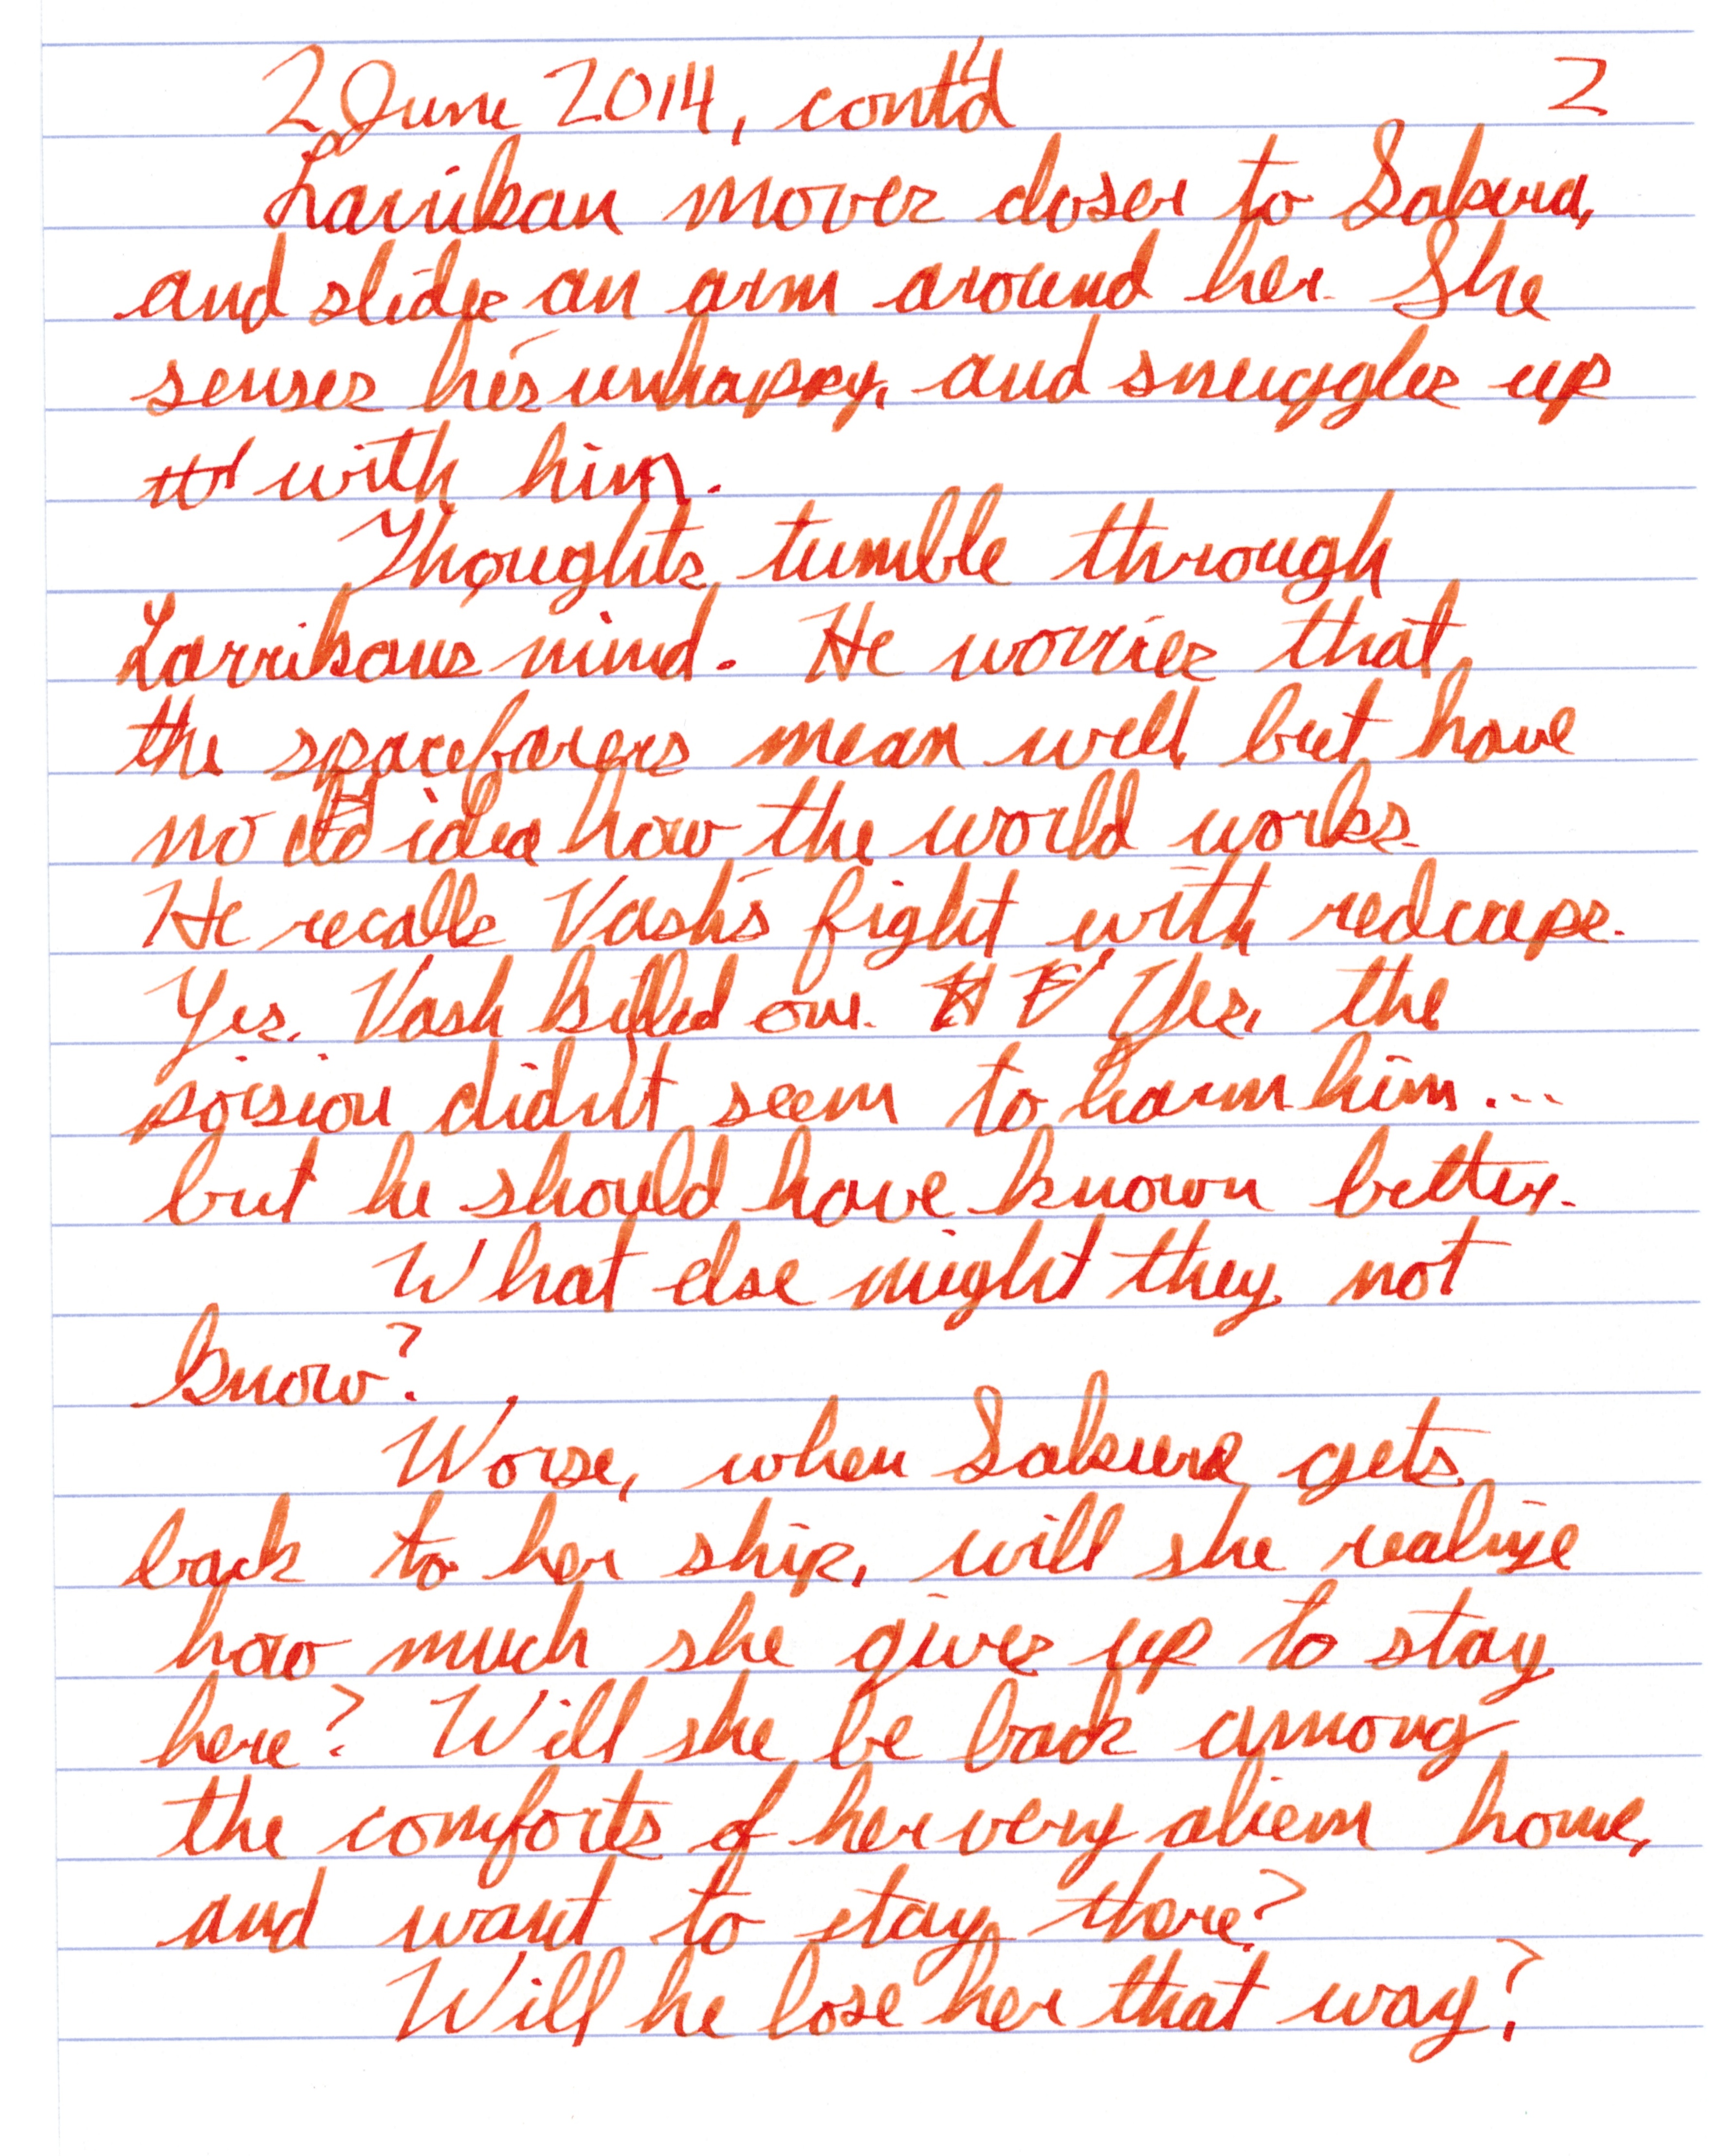 2 June 2014, cont'd 2
Larrikan moves closer to Sakura,
and slides an arm around her. She
senses he's unhappy, and snuggles up
with him.
Thoughts tumble through
Larrikans mind. He worries that
the spacefarers mean well, but have
no idea how the world works.
He recalls Vash's fight with redcaps.
Yes, Vash killed one. Yes, the
poision didn't seem to harm him...
but he should have known better.
What else might they not
know?
Worse, when Sakura gets
back to her ship, will she realize
how much she gives up to stay
here? Will she be back among
the comforts of her very aliem home,
and want to stay there?
Will he lose her that way?